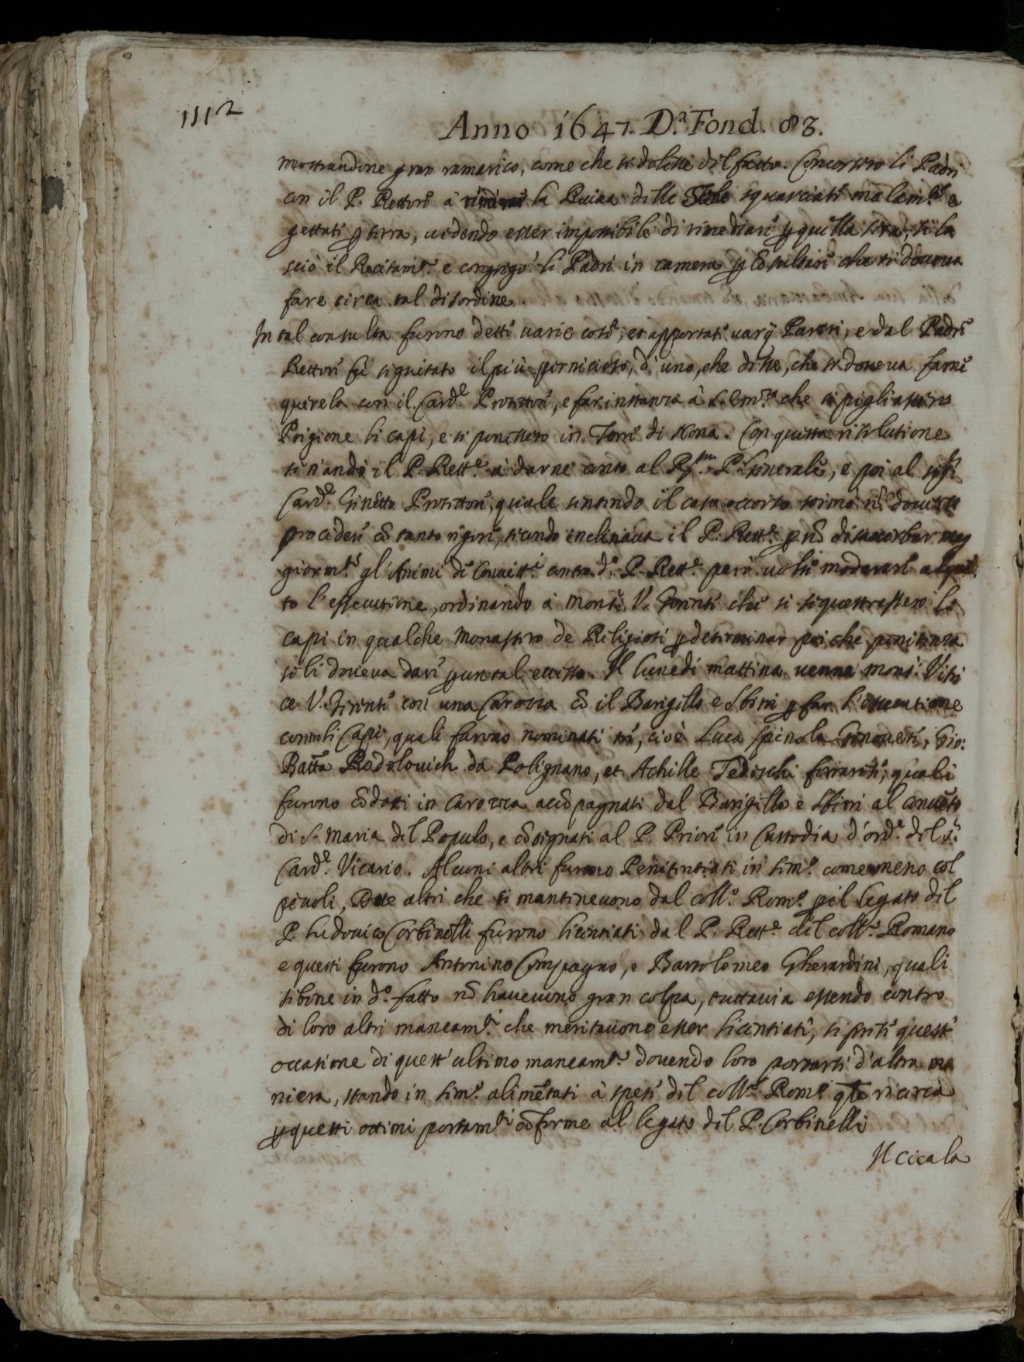 1112
Anno 1647. D.ª Fond. 83.
mostrandone gran ramarico, come che si dolesse del fatto. Concorsero li Padri
con il P. Rettore à la Ruina delle squarciate malam.te e
gettati p terra, vedendo esser impossibile di rimediare p quella sera, si la
sciò il Recitam.to e congregò li Padri in camera p cōsultare che si doveva
fare circa tal disordine.
In tal consulta furono dette varie cose, et apportati varij Pareri, e dal Padre
Rettore fù seguitato il più pernicioso, d'uno, che disse, che si doveva farne
querela con il Card.le Protettore, e far instanza à S. Em.za che si pigliassero
Prigione li capi, e si ponessero in Torre di Nona. Con questa risolutione
si n'andò il P. Rett.e à darne conto al R.mo P. Generale, e poi al Sig.r
Card.le Ginetto Protettore, quale sentendo il caso occorso stimò nō doversi
procedere cō tanto rigore, secondo inclinava il P. Rett.e p nō disturbar mag
giorm.te gl'Animi de Convitt.i anzi d.o P. Rett.e però volse moderare alquā
to l'essecutione, ordinando à Mons.r V. Gerente che si sequestrassero li
capi in qualche Monastero de Religiosi p determinar poi che penitenza
se li doveva dare p un tal eccesso. Il lunedi mattina venne Mons.r Vi
ce V. Gerente con una Carozza cō il Barigello e Sbirri p far l'essecutione
contro li Capi, quali furono nominati trè, cioè Luca Spinola Genovese, Gio:
Batta Rodolovich da Polignano, et Achille Tedeschi ferrarese, quali
furono cōdotti in Carozza accōpagnati dal Barigello e Sbirri al Convēto
di S. Maria del Populo, e cōsignati al P. Priore in Custodia d'ord.e del S.r
Card.le Vicario. Alcuni altri furono Penitentiati in Sem.o come meno col
pevoli, Due altri che si mantenevono dal Coll.o Rom.o pel legato del
P. Ludovico Corbinelli furono licentiati dal P. Rett.e del Coll.o Romano
e questi furono Antonino Compagno, e Bartolomeo Gherardini, quali
sibene in d.o fatto nō havevono gran colpa, tuttavia essendo contro
di loro altri mancam.ti che meritavono esser licentiati, si prese quest'
occasione di quest'ultimo mancam.to dovendo loro portarsi d'altra ma
niera, stando in Sem.o alimētati à spese del Coll.o Rom.o ricerca
p questi ottimi portam.ti cōforme al legato del P. Corbinelli
Il cicala